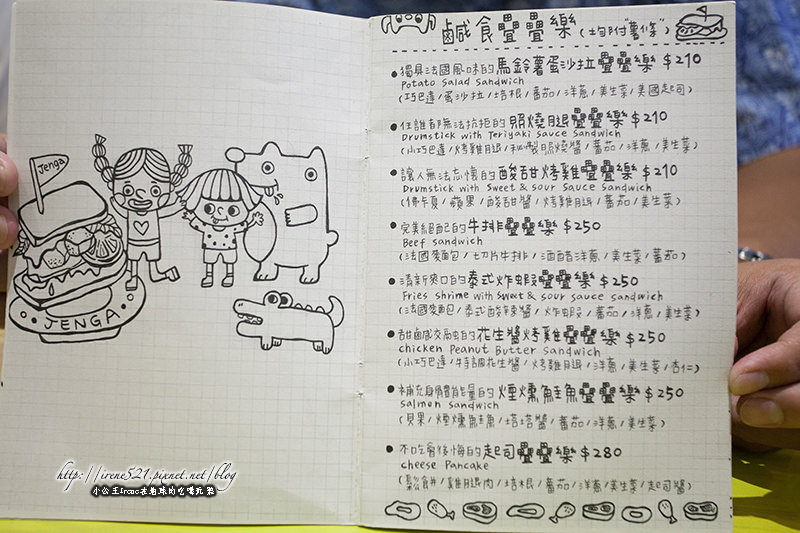 Jenga
JENGA
鹹食疊疊樂(均附"薯條")
獨具法國風味的馬鈴薯蛋沙拉疊疊樂 $210
Potato Salad Sandwich
(巧巴達/蛋沙拉/培根/蕃茄/洋蔥/美生菜/美國起司)
任誰都無法抗拒的照燒腿疊疊樂 $210
Drumstick with Teriyaki Sauce Sandwich
(小巧巴達/烤雞月退/私製照燒醬/蕃茄/洋蔥/美生菜)
讓人無法忘懷的酸甜烤雞疊疊樂 $210
Drumstick with Sweet & sour Sauce Sandwich
(佛卡夏/蘋果/酸甜醬/烤雞月退/蕃茄/美生菜)
完美經自己的牛排疊疊樂 $250
Beef Sandwich
(法國麵包/切片牛排/酒醋洋蔥/美生菜/蕃茄)
清新爽口的泰式炸蝦疊疊樂 $250
Fries shrime with sweet & sour sauce sandwich
(法國麵包/泰式酸辣醬/炸蝦/蕃茄/洋蔥/美生菜)
甜鹹交融的花生醬烤雞疊疊樂 $250
chicken Peanut Butter Sandwich
(小巧巴達/特調花生醬/烤雞月退/洋蔥/美生菜/杏仁)
補充身體能量的煙燻鮭魚疊疊樂 $250
Salmon Sandwich
(貝果/煙燻鮭魚/塔塔醬/蕃茄/洋蔥/美生菜)
不吃會後悔的起司疊疊樂 $280
cheese Pancake
(鬆餅/雞月退肉/培根/蕃茄/洋蔥/美生菜/起司醬)
http://irene521.pixnet.net/blog
小公主Irene在地球的吃喝玩樂